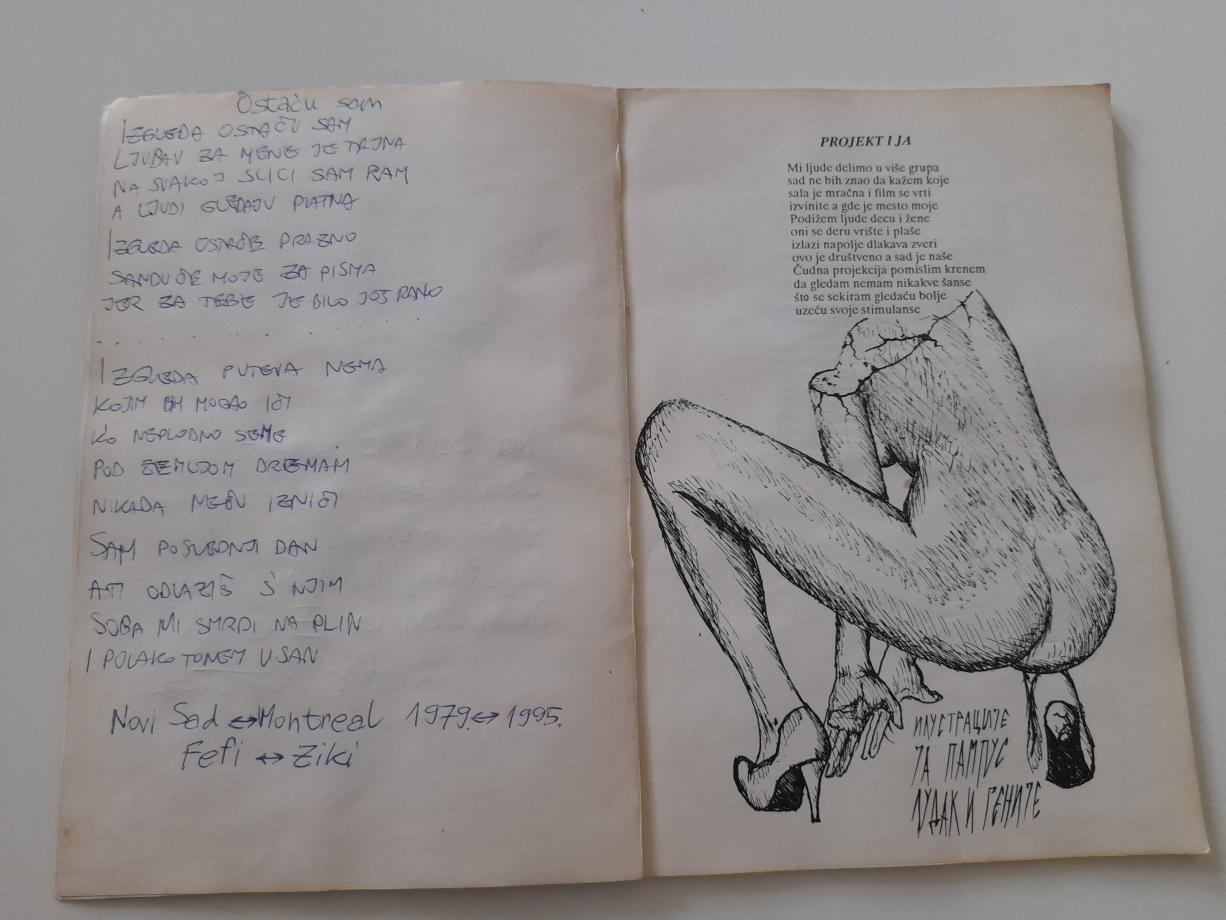 Ostaću sam
IZGLEDA OSTAĆU SAM
LJUBAV ZA MENE JE TRJNA
NA SVAKOJ SLICI SAM RAM
A LJUDI GLEDAJU PLATNA
IZGLEDA OSTAĆE PRAZNO
SANDUČE MOJE ZA PISMA
JER ZA TEBE JE BILO JOŠ RANO
. . . . . . . .
IZGLEDA PUTEVA NEMA
KOJIM BIH MOGAO IĆI
KO NEPLODNO SEME
POD ZEMLJOM DREMAM
NIKADA NEĆU IZNIĆI
SAM POSLEDNJI DAN
A TI ODLAZIŠ S NJIM
SOBA MI SMRDI NA PLIN
I POLAKO TONEM U SAN
Novi Sad ↔ Montreal 1979. ↔ 1995.
Fefi ↔ Ziki
PROJEKT I JA
Mi ljude delimo u više grupa
sad ne bih znao da kažem koje
sala je mračna i film se vrti
izvinite a gde je mesto moje
Podižem ljude decu i žene
oni se deru vrište i plaše
izlazi napolje dlakava zveri
ovo je društveno a sad je naše
Čudna projekcija pomislim krenem
da gledam nemam nikakve šanse
što se sekiram gledaću bolje
uzeću svoje stimulanse
ИЛУСТРАЦИЈЕ
ЈА ПАМПУС
ЛУДАК И ГЕНИЈЕ